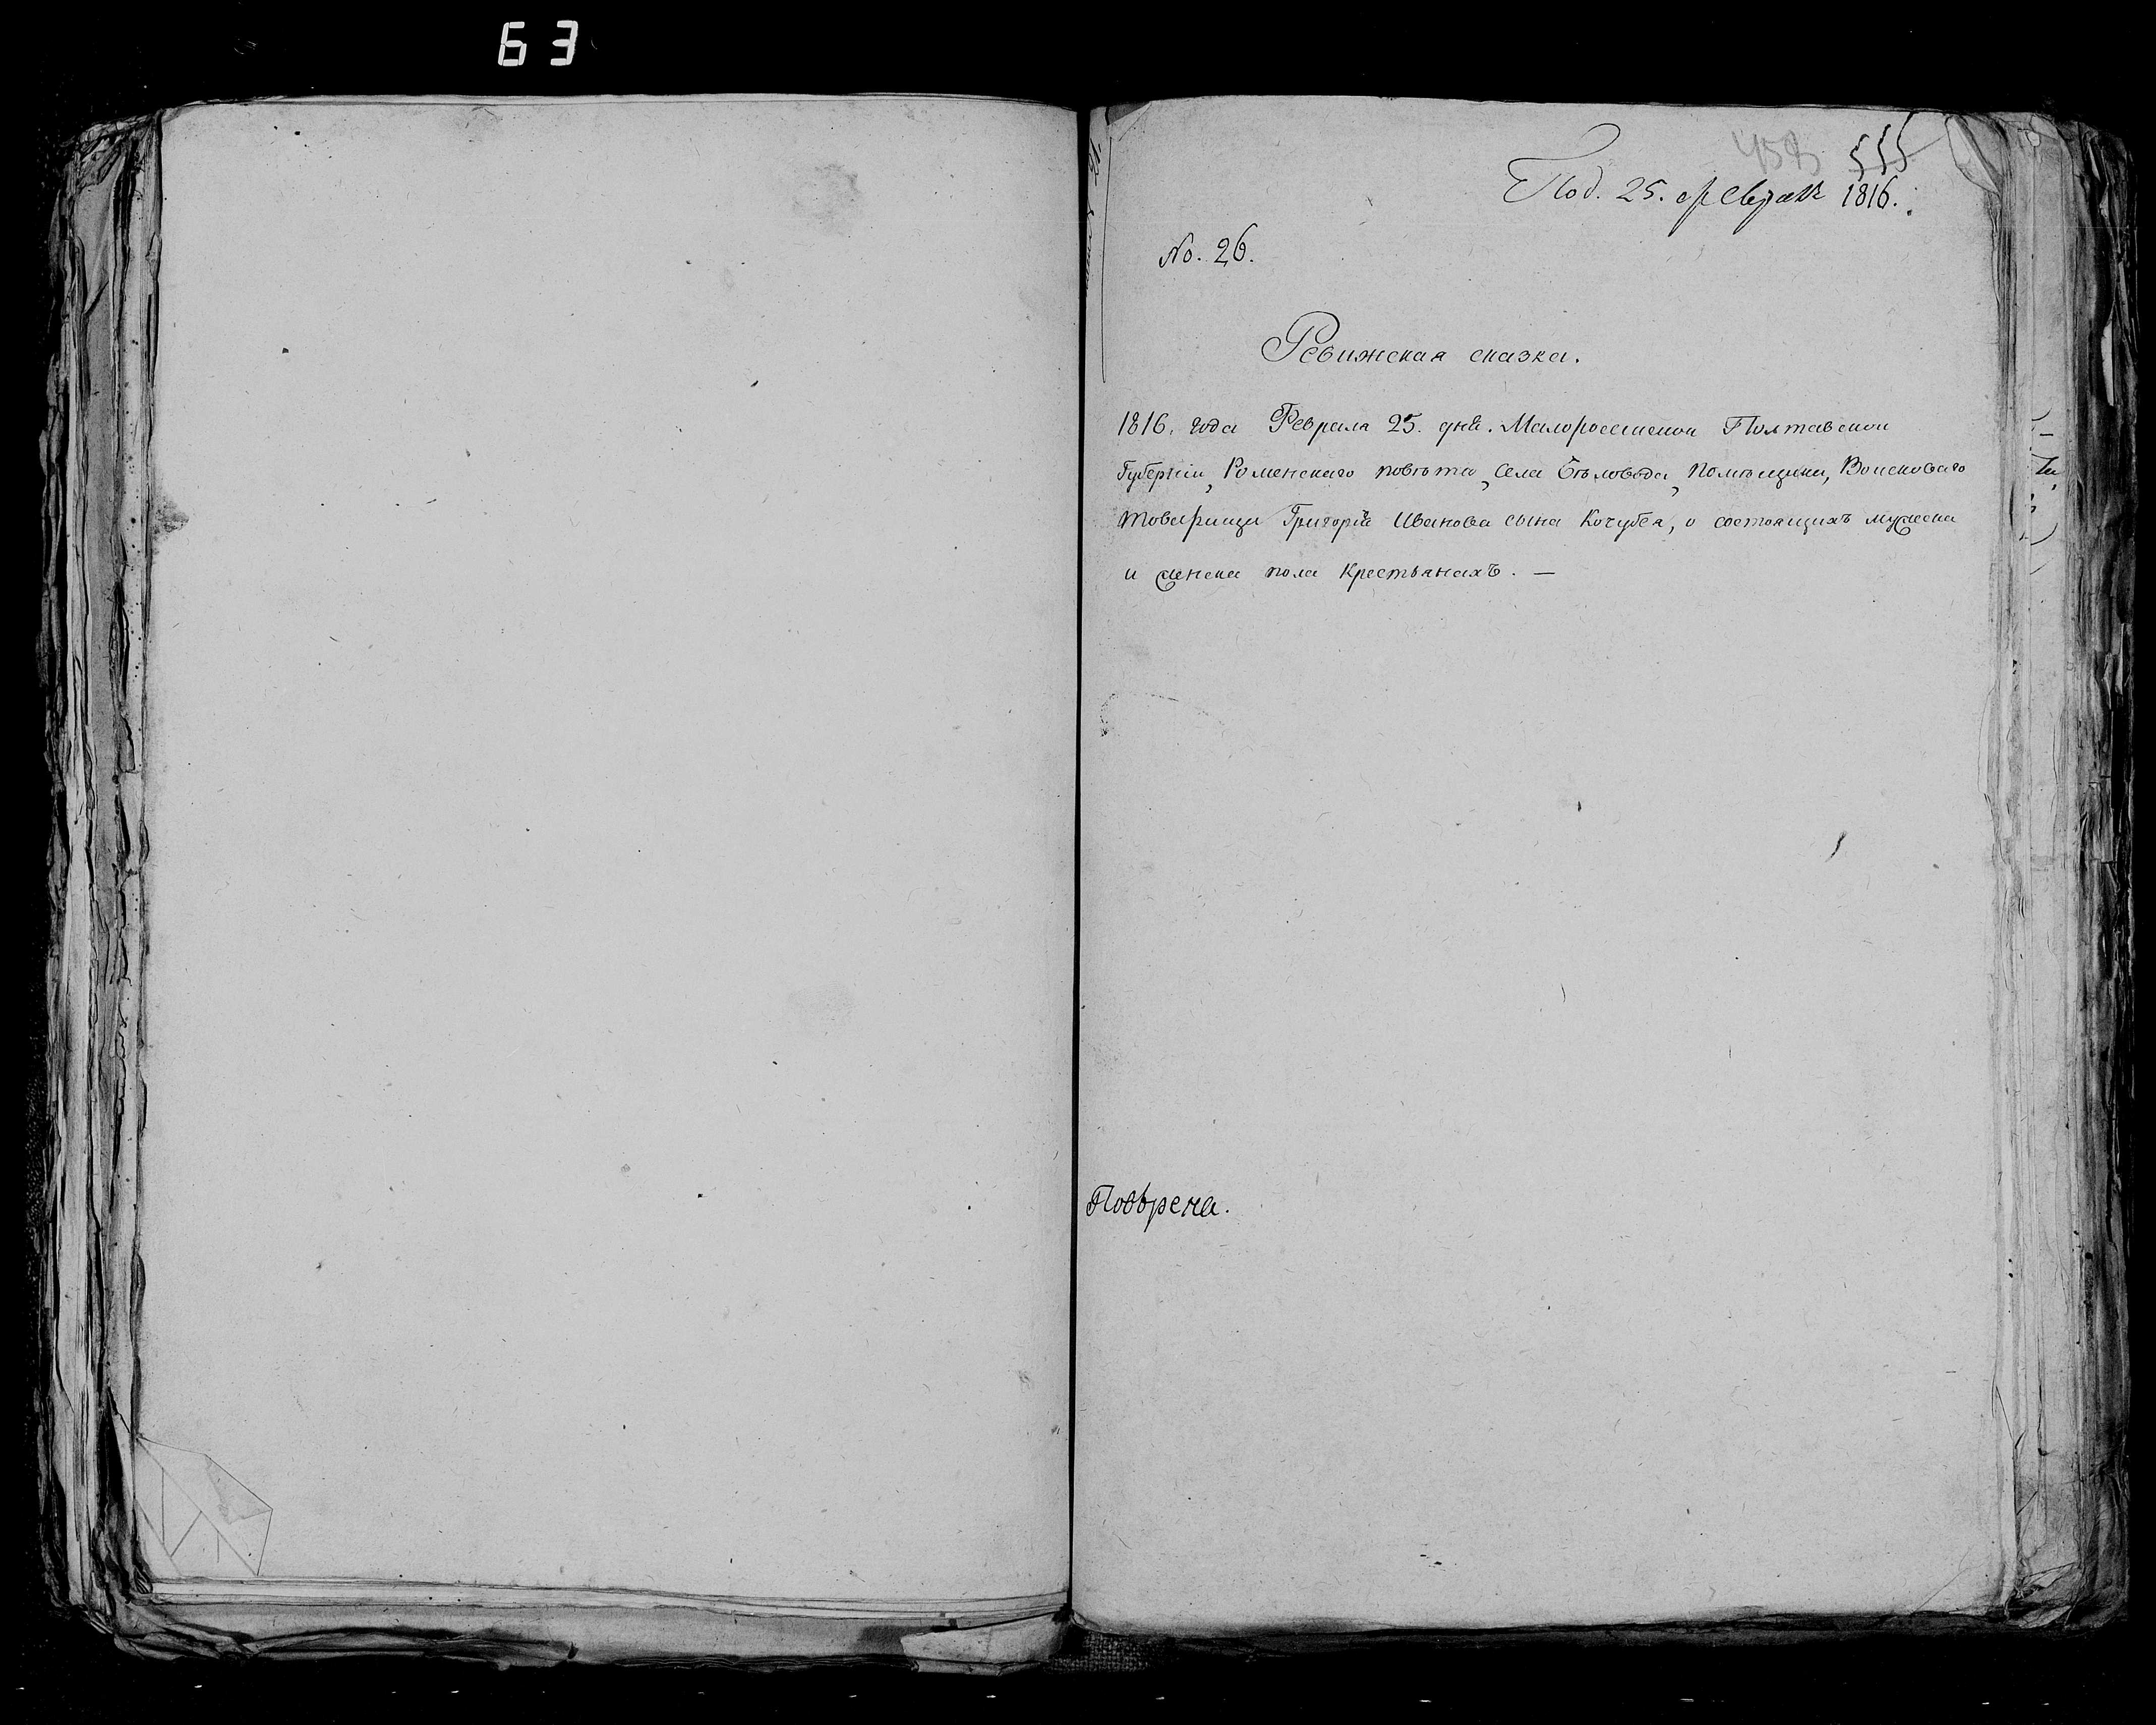 63
555
Под. 25. февраля 1816.
No. 26.
Ревижская сказка.
1816. года Февраля 25. дня. Малороссійской Полтавской
Губерніи, Роменскаго повѣта, Села Бѣловода, Помѣщика, Войсковаго
товарища Григорія Иванова сына Кочубея, о состоящихъ мужеска
и женска пола крестьянахъ. —
Повѣрена.